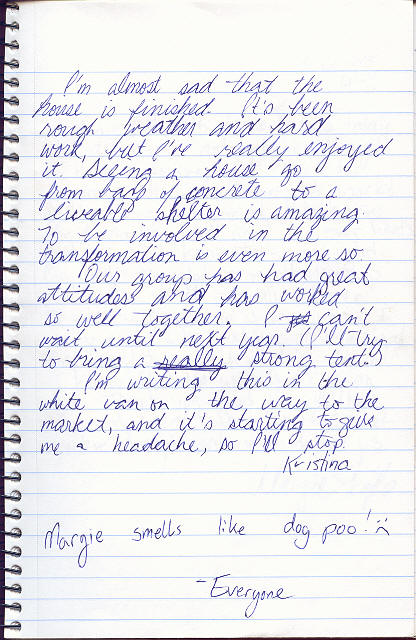 I'm almost sad that the
house is finished. It's been
rough weather and hard
work, but I've really enjoyed
it. Seeing a house go
from bags of concrete to a
liveable shelter is amazing.
To be involved in the
transformation is even more so.
Our group has had great
attitudes and has worked
so well together. I can't
wait until next year. (I'll try
to bring a really strong tent.)
I'm writing this in the
white van on the way to the
market, and it's starting to give
me a headache, so I'll stop.
Kristina
Margie smells like dog poo! :(
- Everyone